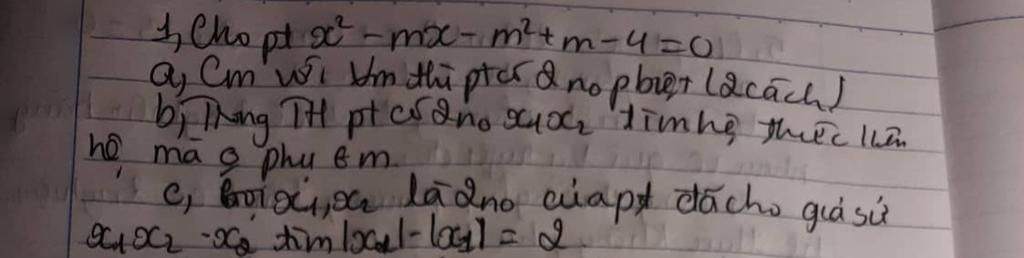 1, Cho pt x² - mx - m² + m - 4 = 0
a, Cm với ∀m thì pt có 2 no pbiệt (2 cách)
b, Trong TH pt có 2 no x₁x₂ tìm hệ thức liên
hệ mà phụ m.
c, Gọi x₁, x₂ là 2 no của pt đã cho giả sử
x₁x₂ tìm |x₂| - |x₁| = 2